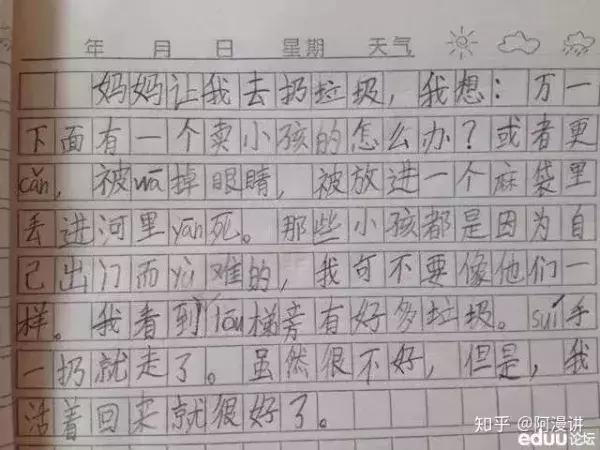 年 月 日 星期 天气
妈妈让我去扔垃圾，我想：万一
下面有一个卖小孩的怎么办？或者更
cǎn，被wā掉眼睛，被放进一个麻袋里
丢进河里yān死。那些小孩都是因为自
己出门而yù难的，我可不要像他们一
样。我看到lóu梯旁有好多垃圾。suí手
一扔就走了。虽然很不好，但是，我
活着回来就很好了。
知乎 @阿漫讲
eduu论坛